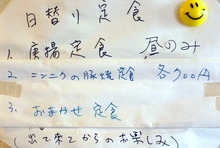 日替り定食
1. 唐揚定食 昼のみ
2. ニンニクの豚焼定食 各700円
3. おまかせ定食
(出て来てからのお楽しみ)